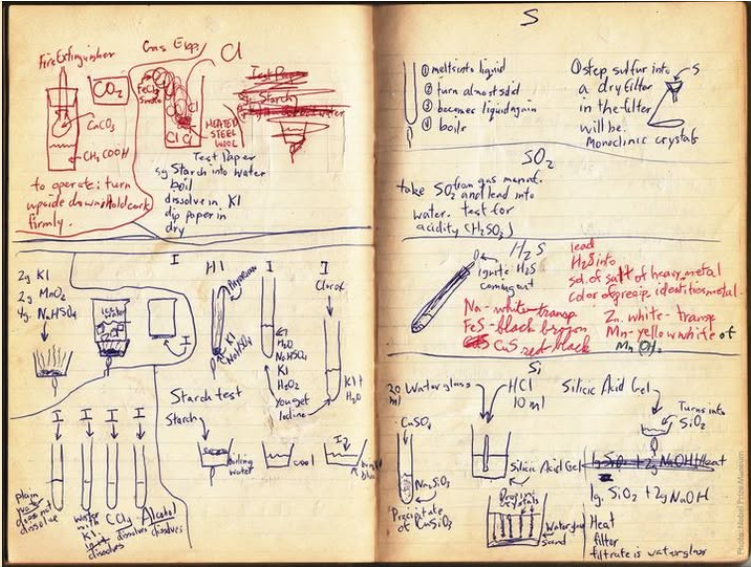 Fire Extinguisher
CO2
CaCO3
CH3COOH
to operate: turn
upside down. Hold cork
firmly.
Gas Exp.
Cl
FeCl3
smoke
Cl
Cl Cl
HEATED
STEEL
WOOL
Test Paper
5g Starch
water
Test Paper
5g Starch into water
boil
dissolve in KI
dip paper in
dry
I
2g KI
2g MnO2
4g. NaHSO4
Water
I
HI
KI
NaHSO4
I
H2O
NaHSO4
KI
H2O2
You get
Iodine
I
Clorox
KI+
H2O
Starch test
Starch
boiling
water
cool
I2
I I I I
plain
does not
dissolve
water
with
KI.
dissolves
CCl4
dissolves
Alcohol
dissolves
S
① melts into liquid
② turn almost solid
③ becomes liquid again
④ boils
① step sulfur into
a dry filter
in the filter
will be.
Monoclinic crystals
S
SO2
take SO2 from gas manat.
and lead into
water. test for
acidity (H2SO3)
H2S
ignite H2S
comes out
lead
H2S into
sol. of salt of heavy metal
color of precip. identities metal.
Na - white - transp
FeS - black brown
CuS red black
Zn. white - transp
Mn - yellow white of
Mn OH2
Si
20
ml
Waterglass
HCl
10 ml
Silicic Acid Gel
CuSO4
Na2SiO3
Precipitate
of CuSiO3
Silicic Acid Gel
Crystals
Waterglass
Sand
Turns into
SiO2
1g. SiO2 + 2g NaOH Heat
1g. SiO2 + 2g NaOH
Heat
filter
filtrate is waterglass
Photo: Nobel Prize Museum